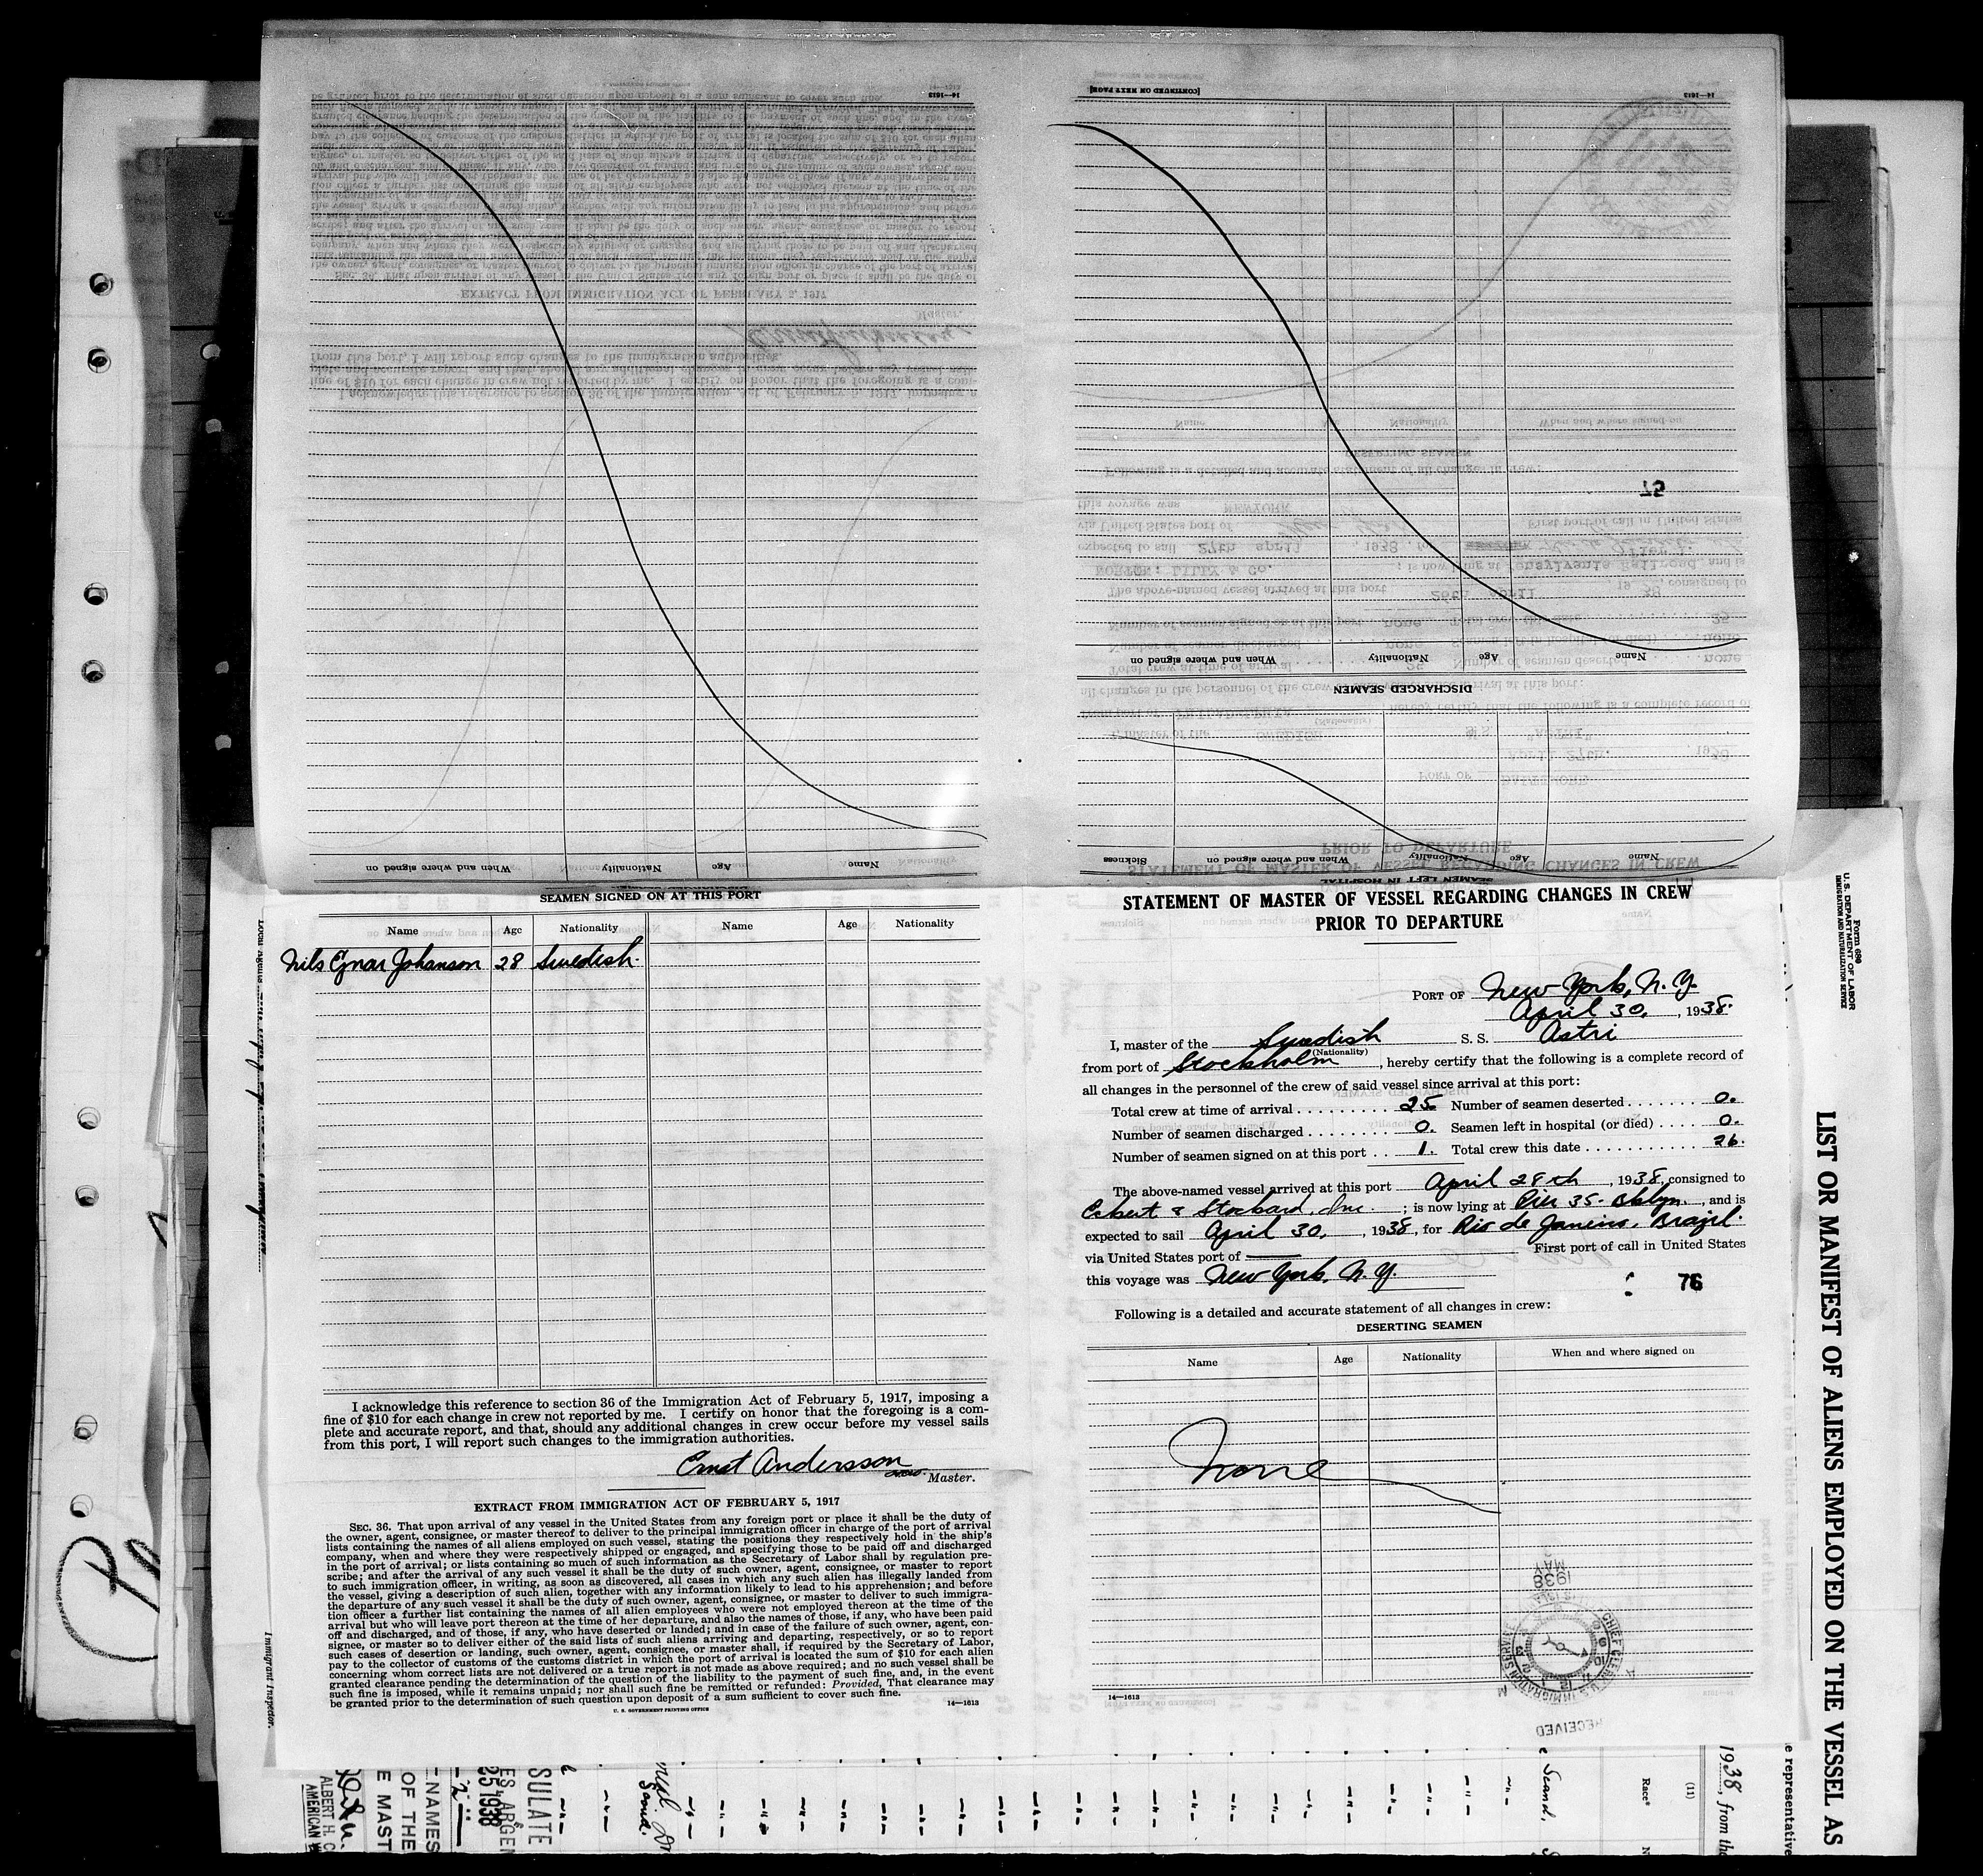 SEAMEN SIGNED ON AT THIS PORT
Name Age Nationality Name Age Nationality
Nils Ejnar Johanson 28 Swedish.
I acknowledge this reference to section 36 of the Immigration Act of February 5, 1917, imposing a
fine of $10 for each change in crew not reported by me. I certify on honor that the foregoing is a com-
plete and accurate report, and that, should any additional changes in crew occur before my vessel sails
from this port, I will report such changes to the immigration authorities.
Ernst Andersson
Master.
EXTRACT FROM IMMIGRATION ACT OF FEBRUARY 5, 1917
SEC. 36. That upon arrival of any vessel in the United States from any foreign port or place it shall be the duty of
the owner, agent, consignee, or master thereof to deliver to the principal immigration officer in charge of the port of arrival
lists containing the names of all aliens employed on such vessel, stating the positions they respectively hold in the ship's
company, when and where they were respectively shipped or engaged, and specifying those to be paid off and discharged
in the port of arrival; or lists containing so much of such information as the Secretary of Labor shall by regulation pre-
scribe; and after the arrival of any such vessel it shall be the duty of such owner, agent, consignee, or master to report
to such immigration officer, in writing, as soon as discovered, all cases in which any such alien has illegally landed from
the vessel, giving a description of such alien, together with any information likely to lead to his apprehension; and before
the departure of any such vessel it shall be the duty of such owner, agent, consignee, or master to deliver to such immigra-
tion officer a further list containing the names of all alien employees who were not employed thereon at the time of the
arrival but who will leave port thereon at the time of her departure, and also the names of those, if any, who have been paid
off and discharged, and of those, if any, who have deserted or landed; and in case of the failure of such owner, agent, con-
signee, or master so to deliver either of the said lists of such aliens arriving and departing, respectively, or so to report
such cases of desertion or landing, such owner, agent, consignee, or master shall, if required by the Secretary of Labor,
pay to the collector of customs of the customs district in which the port of arrival is located the sum of $10 for each alien
concerning whom correct lists are not delivered or a true report is not made as above required; and no such vessel shall be
granted clearance pending the determination of the question of the liability to the payment of such fine, and, in the event
such fine is imposed, while it remains unpaid; nor shall such fine be remitted or refunded: Provided, That clearance may
be granted prior to the determination of such question upon deposit of a sum sufficient to cover such fine.
14—1613
U. S. GOVERNMENT PRINTING OFFICE
STATEMENT OF MASTER OF VESSEL REGARDING CHANGES IN CREW
PRIOR TO DEPARTURE
PORT OF New York, N. Y.
April 30, , 1938.
I, master of the Swedish S. S. Astri
(Nationality)
from port of Stockholm , hereby certify that the following is a complete record of
all changes in the personnel of the crew of said vessel since arrival at this port:
Total crew at time of arrival 25 Number of seamen deserted 0.
Number of seamen discharged 0. Seamen left in hospital (or died) 0.
Number of seamen signed on at this port 1. Total crew this date 26.
The above-named vessel arrived at this port April 28th , 1938, consigned to
Eckert & Stockard, Inc. ; is now lying at Pier 35- Bklyn. , and is
expected to sail April 30, , 1938, for Rio de Janeiro, Brazil.
via United States port of —— First port of call in United States
this voyage was New York, N. Y.
76
Following is a detailed and accurate statement of all changes in crew:
DESERTING SEAMEN
Name Age Nationality When and where signed on
None
14—1613
RECEIVED
1938
MAY
DISCHARGED SEAMEN
Name Age Nationality When and where signed on
[CONTINUED ON NEXT PAGE]
14—1613
SEAMEN LEFT IN HOSPITAL
Name Age Nationality When and where signed on Sickness
Name Age Nationality When and where signed on
14—1613
Form 680
U. S. DEPARTMENT OF LABOR
IMMIGRATION AND NATURALIZATION SERVICE
LIST OR MANIFEST OF ALIENS EMPLOYED ON THE VESSEL AS
Immigrant Inspector.
1938, from the
(11)
Race*
Scand.
SULATE
25 1938
NAMES
OF THE
E MAST
ALBERT H. C
AMERICAN